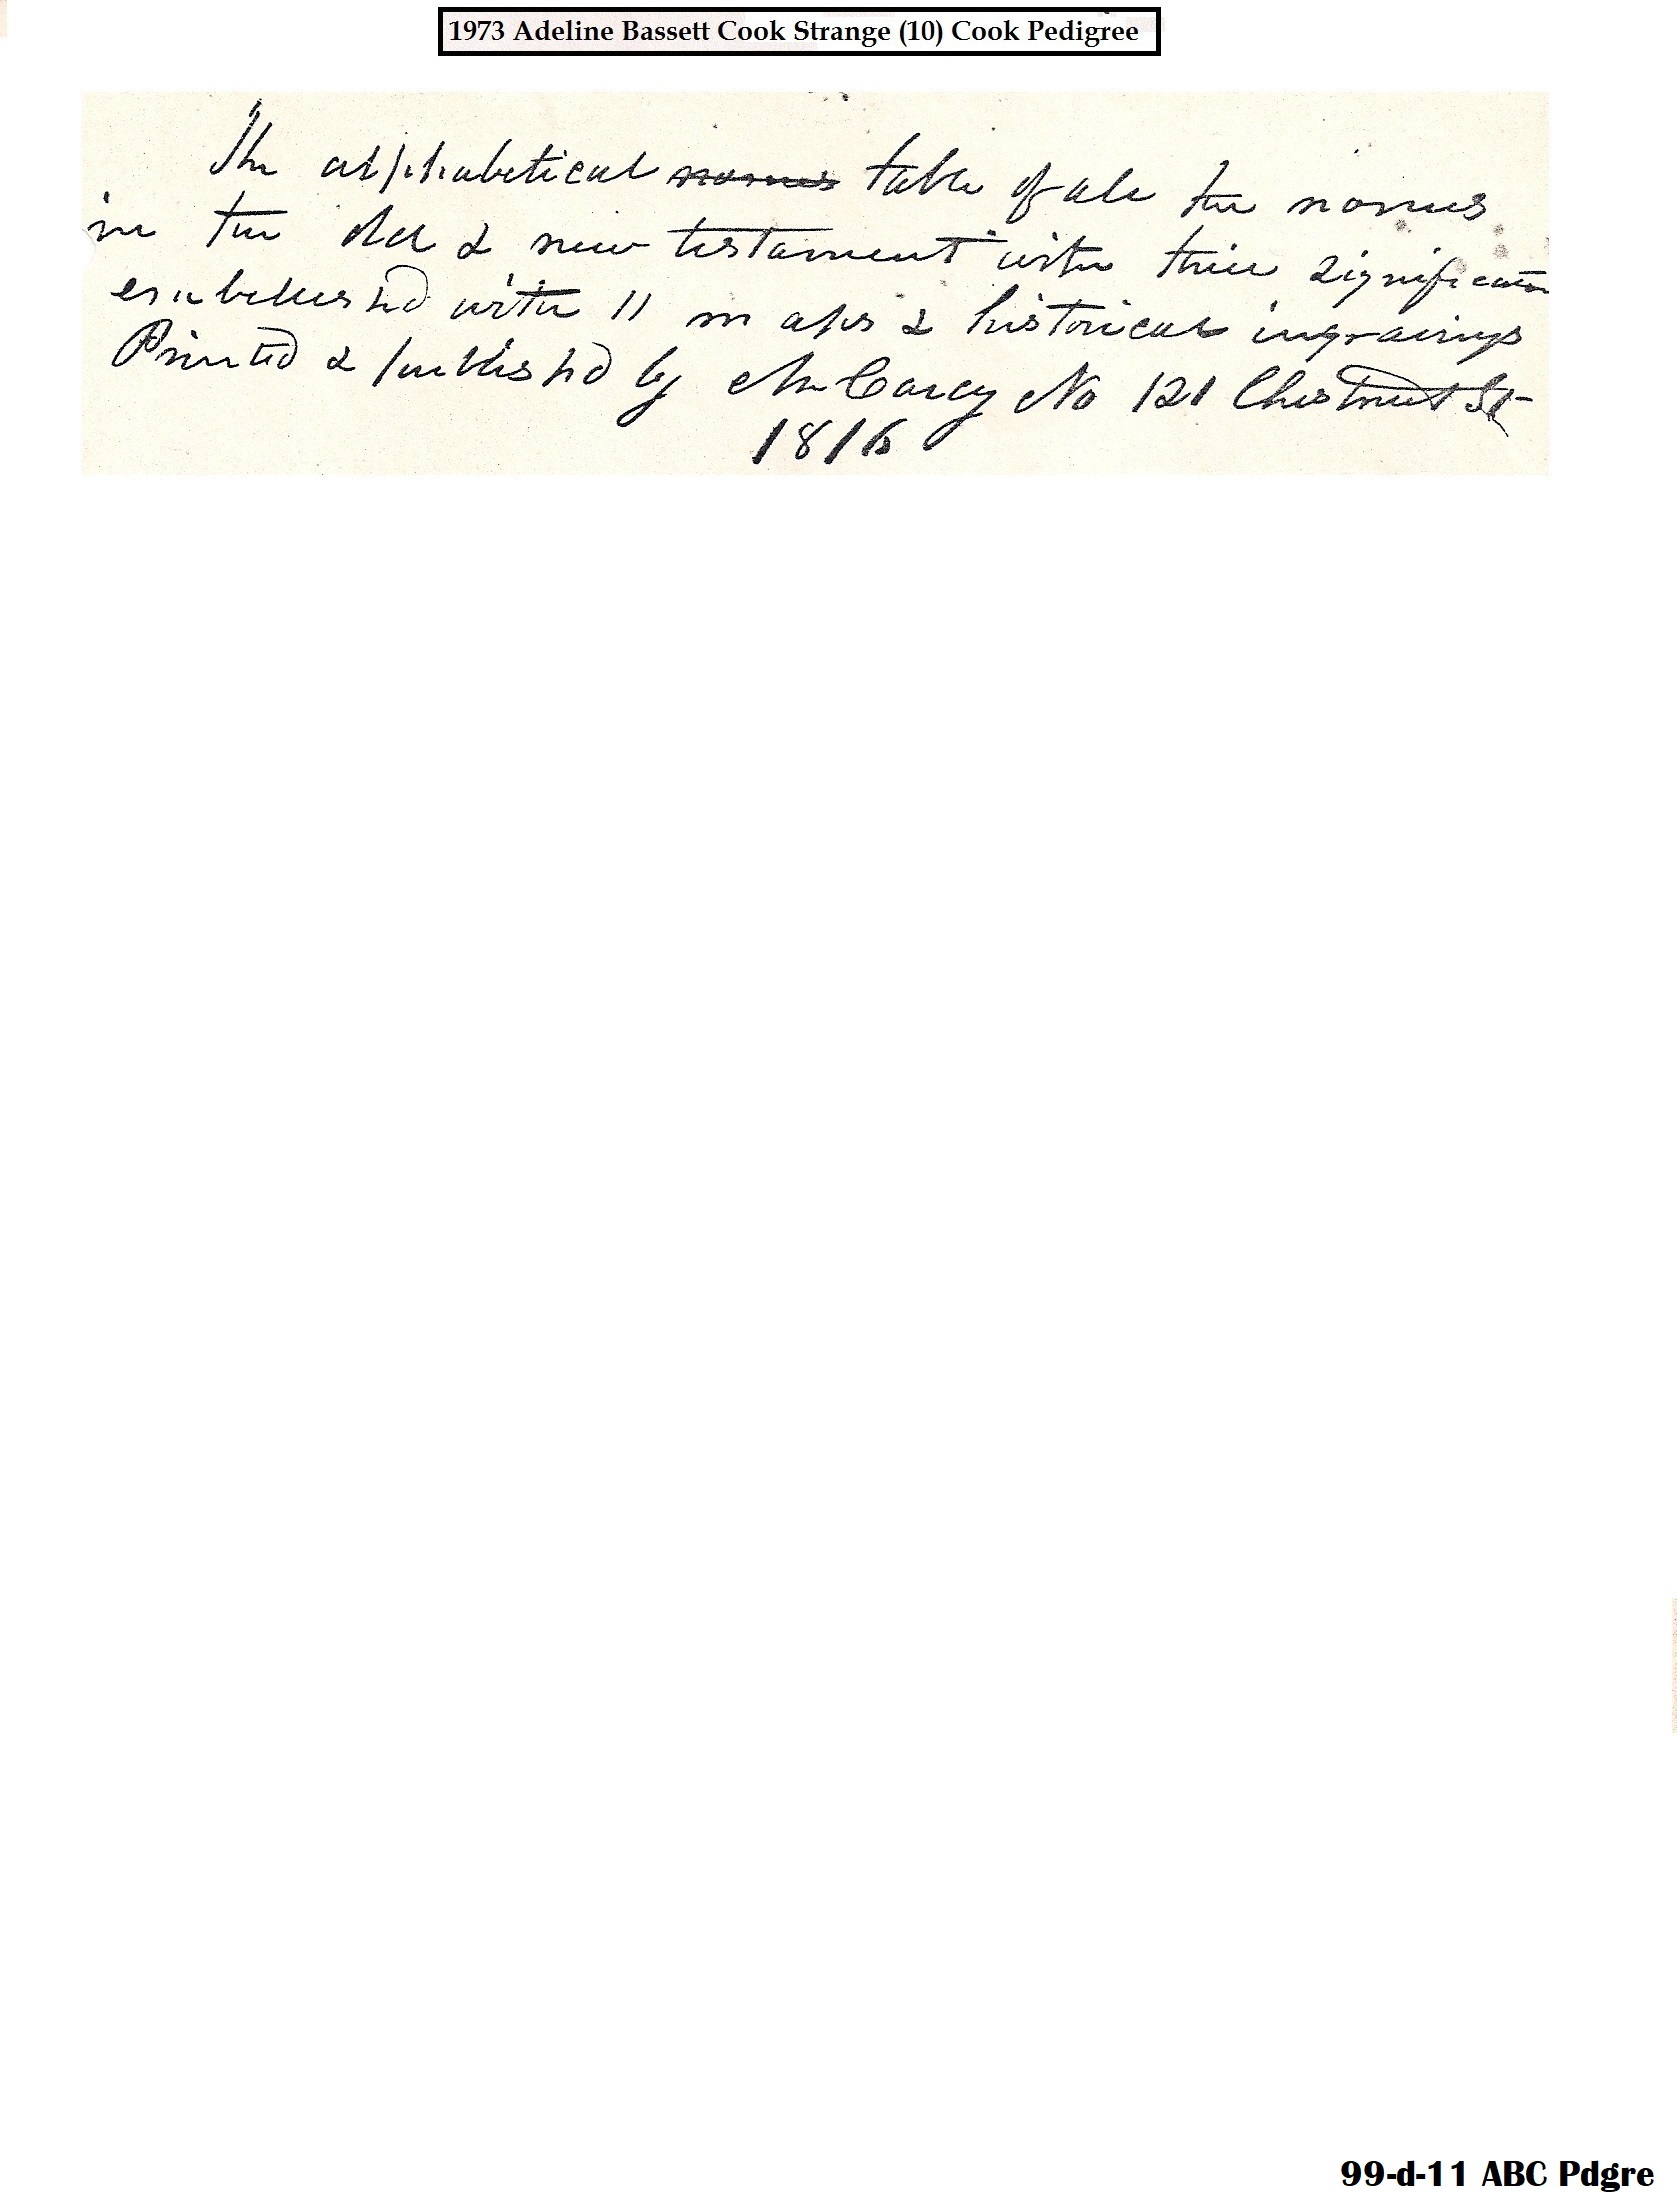 1973 Adeline Bassett Cook Strange (10) Cook Pedigree
The alphabetical names table of all the names
in the old & new testament with their signification
embellished with 11 maps & historical ingravings
Printed & published by M Carey No 121 Chestnut St
1816
99-d-11 ABC Pdgre